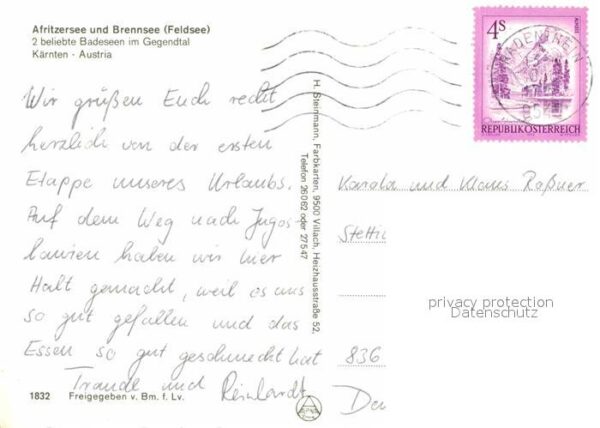 Afritzersee und Brennsee (Feldsee)
2 beliebte Badeseen im Gegendtal
Kärnten - Austria
Wir grüßen Euch recht
herzlich von der ersten
Etappe unseres Urlaubs.
Auf dem Weg nach Jugos-
lawien haben wir hier
Halt gemacht, weil es uns
so gut gefallen und das
Essen so gut geschmeckt hat
Traudl und Reinhardt
1832 Freigegeben v. Bm. f. Lv.
H. Steinmann, Farbkarten, 9500 Villach, Heizhausstraße 52,
Telefon 26 0 62 oder 27 5 47
4 S
REPUBLIK ÖSTERREICH
und Klaus Raßner
Stetti
privacy protection
Datenschutz
836